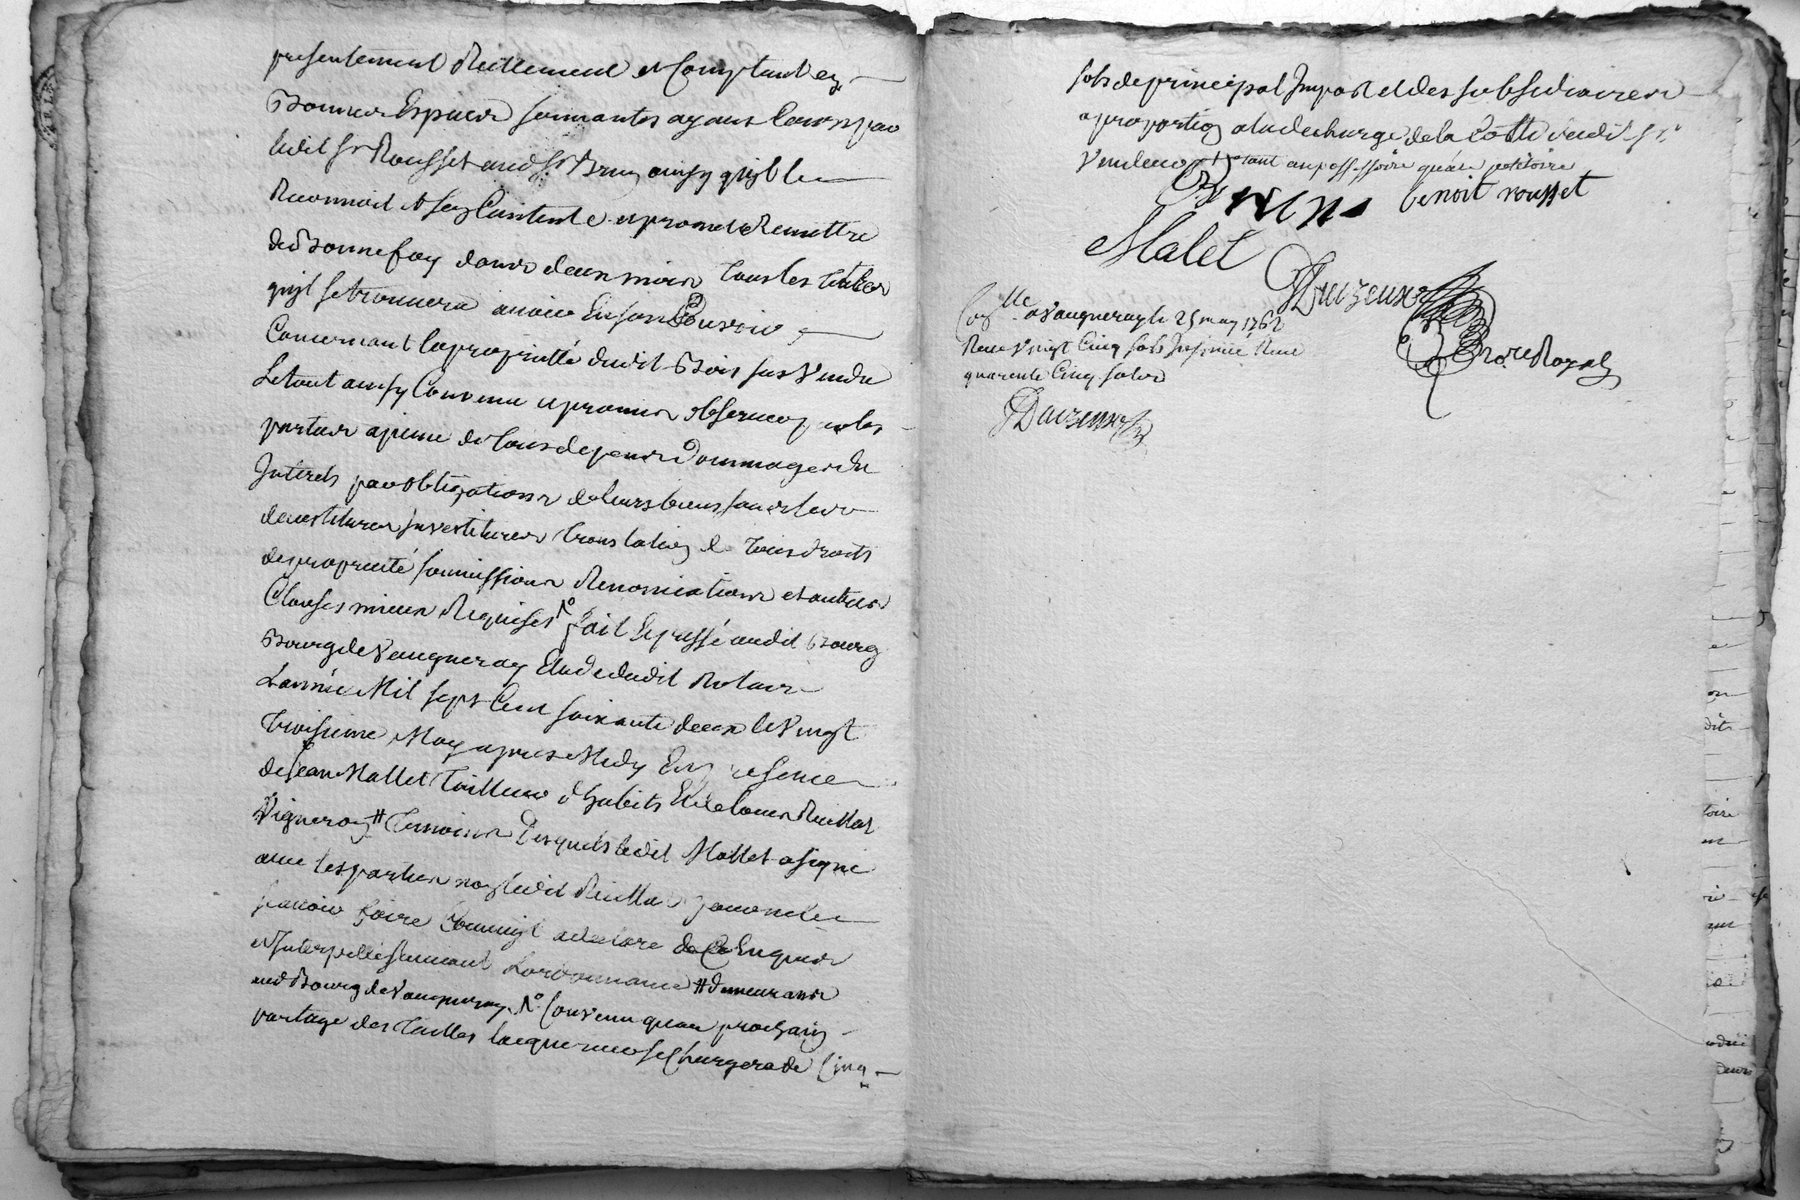 presentement Reellement et Comptant en
Bonnes Especes sonnantes ayant Cours par
ledit Sr Rousset aud Sr Brun ainsy quil le
Reconnoit et sen Contente et promet Remettre
de Bonne foy dans deux mois tous les titres
quil se trouvera avoir En son Pouvoir
Concernant la proprietté dudit Bois sus Vendu
Le tout ainsy Convenu et promis observer par les
parties a peine de tous depens Dommages et
Interets par obligations de leurs biens
devestitures Investitures translation de tous droits
de proprieté soumissions Renonciations et autres
Clauses mieux Requises fait Et passé audit Bourg
Bourg de Vaugneray Etude dudit Notaire
Lannée Mil sept Cent soixante deux le Vingt
troisieme May apres Midy En presence
de Jean Mallet Tailleur d'habits Et de Louis
Vigneron # temoins Desquels ledit Mallet a signé
avec les parties non ledit pour ne le
scavoir faire Comme il a declaré de Ce Enquis
et Interpellé suivant Lordonnance # demeurants
aud Bourg de Vaugneray No Convenu quau prochain
partage des tailles lacquereur se Chargera de Cinq
sols de principal Impost et des subsidiaires
a proportion a la decharge de la Cotte dudit Sr
Vendeur tant au possessoire quau petitoire
Brun benoit rousset
Malet
Dauzeux
Conlle a Vaugneray le 25 may 1762
Receu Vingt Cinq sols Insinué Receu
quarente Cinq sols
Nore Royal
Dauzeux